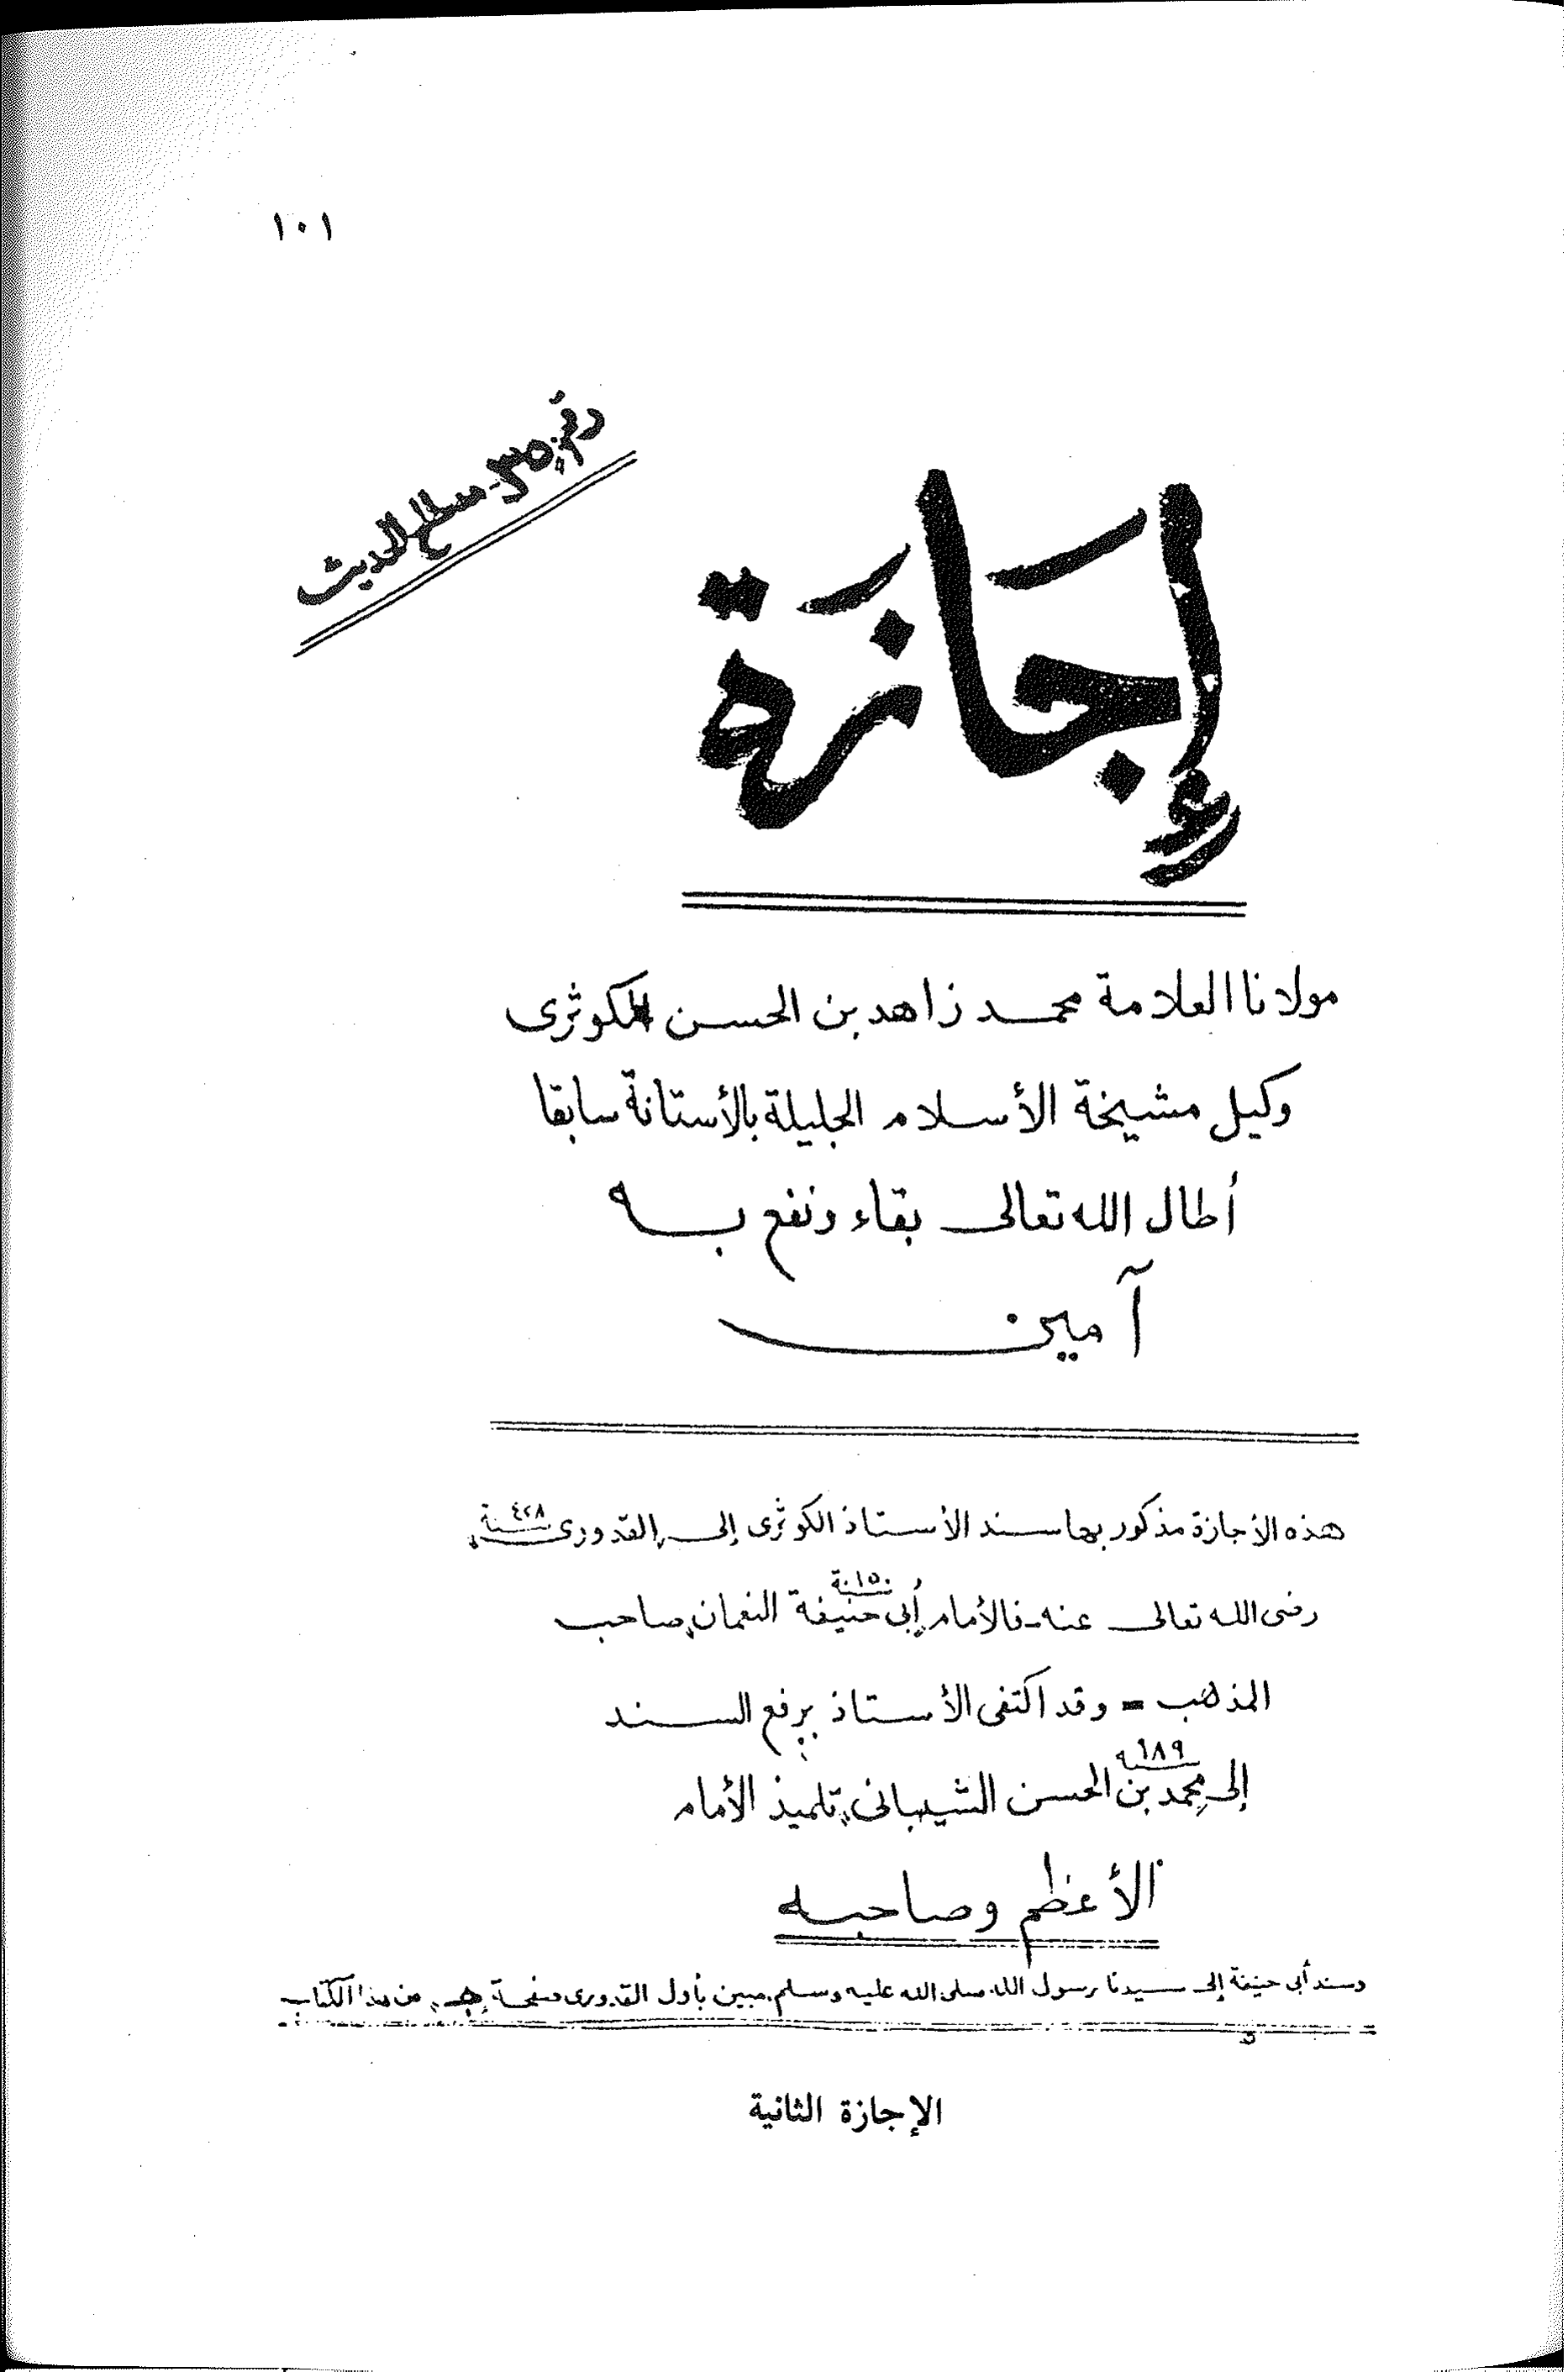 ١٠١
رقم ٣٥ مصطلح الحديث
إِجَازَة
مولانا العلامة محمد زاهد بن الحسن الكوثرى
وكيل مشيخة الأسلام الجليلة بالأستانة سابقا
أطال الله تعالى بقاء ونفع به
آمين
هذه الأجازة مذكور بها سند الأستاذ الكوثرى إلى القدورى سنة ٤٢٨
رضى الله تعالى عنه - فالأمام أبى حنيفة النعمان صاحب سنة ١٥٠
المذهب = وقد اكتفى الأستاذ برفع السند
إلى محمد بن الحسن الشيبانى تلميذ الأمام ١٨٩
الأعظم وصاحبه
وسند أبى حنيفة إلى سيدنا رسول الله صلى الله عليه وسلم مبين بأول القدورى صفحة من هذا الكتاب
الإجازة الثانية